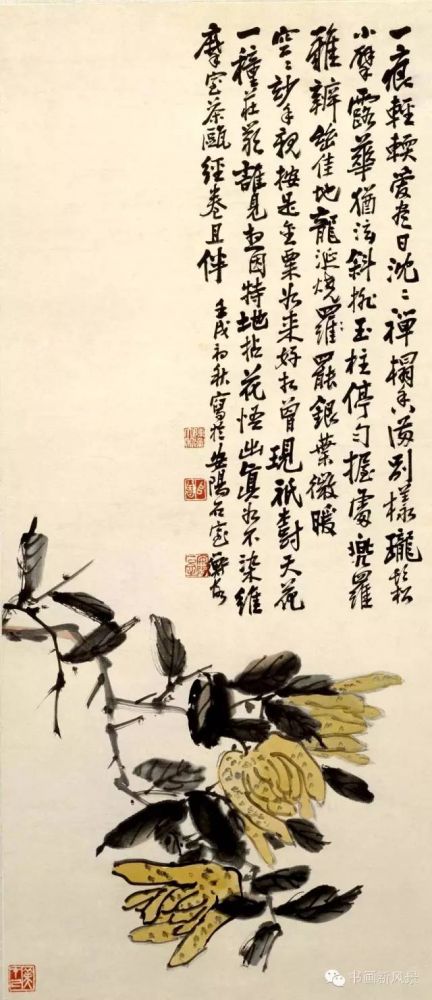 一痕輕輭愛盡日沈〻禪榻香滿別樣瓏鬆
小擘露華猶泫斜拖玉柱停勻握處兜羅
雅辨佳地龍涎燒羅罷銀葉微暖
空〻妙手親按是金粟如来好相曾現祇對天花
一種莊嚴誰見想因特地拈花悟出真如不染維
摩室茶甌經卷且伴
壬戌初秋寫於安陽石室
书画新风景